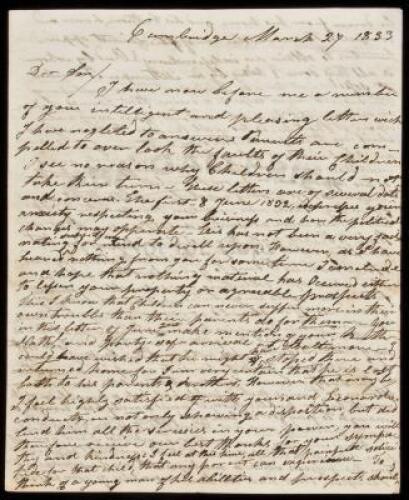 Cambridge March 27 1833
Dr Son/
I have now before me a number
of your intelligent and pleasing letters wch
I have neglected to answer. Parents are com-
pelled to over look the faults of their Children
I see no reason why Children should not
take their turn. These letters are of several dates
and concerns. The first 8 June 1832 expresses your
anxiety respecting your business and how the political
changes may operate this has not been a very fasci
nating for to dwell upon However, as I have
heard nothing from you for some time I conclude
and hope that nothing material has occured either
to lessen your property or agreeable prospects
this I know that Children can never suffer more in their
own troubles than their parents do for them. You
in this letter of June make mention of
arrival at
could have wished that he might have stoped there and
returned home for I am very certain that he is lost
both to his parents & brother. However that may be
I feel highly satisfied with yours and Leonards
conduct, in not only showing a disposition but did
lend him all the services in your power, you will
therefore receive our best thanks for your sympa
thy and kindness I feel at this time, all that parental solici
tude for that child, that any parent can experience. To
think of a young man of his abilities and prospects, should